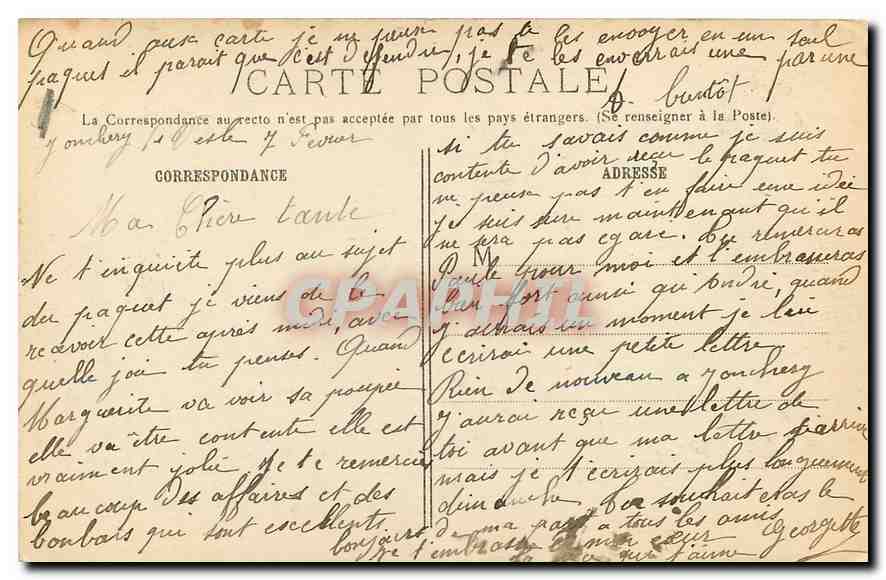 Quand aux carte je ne peux pas te les envoyer en un seul
paques il parait que c'est défendre, je te les enverrais une par une
CARTE POSTALE
à bientôt
La Correspondance au recto n'est pas acceptée par tous les pays étrangers. (Se renseigner à la Poste).
Jonchery s/ Vesle 7 Fevrier
CORRESPONDANCE
Ma Chère tante
Ne t'inquiète plus au sujet
du paquet je viens de le
recevoir cette après midi, avec
quelle joie tu penses. Quand
Marguerite va voir sa poupée
elle va être contente elle est
vraiment jolie. Je te remercie
beaucoup des affaires et des
bonbons qui sont excellents.
si tu savais comme je suis
contente d'avoir reçu le paquet tu
ADRESSE
ne peux pas t'en faire une idée
je suis sure maintenant qu'il
ne sera pas egaré. Tu remerciras
M
Paule pour moi et l'embrasseras
bien fort ainsi qu'André, quand
j'aurais un moment je leu
écrirai une petite lettre
Rien de nouveau a Jonchery
J'aurai reçu une lettre de
toi avant que ma lettre t'arrive
mais je t'écrirais plus longuement
dimanche. Tu souhaiteras le
bonjour de ma part a tous les amis
Je t'embrasse de mon cœur Georgette
qui t'aime
CPAPHIL